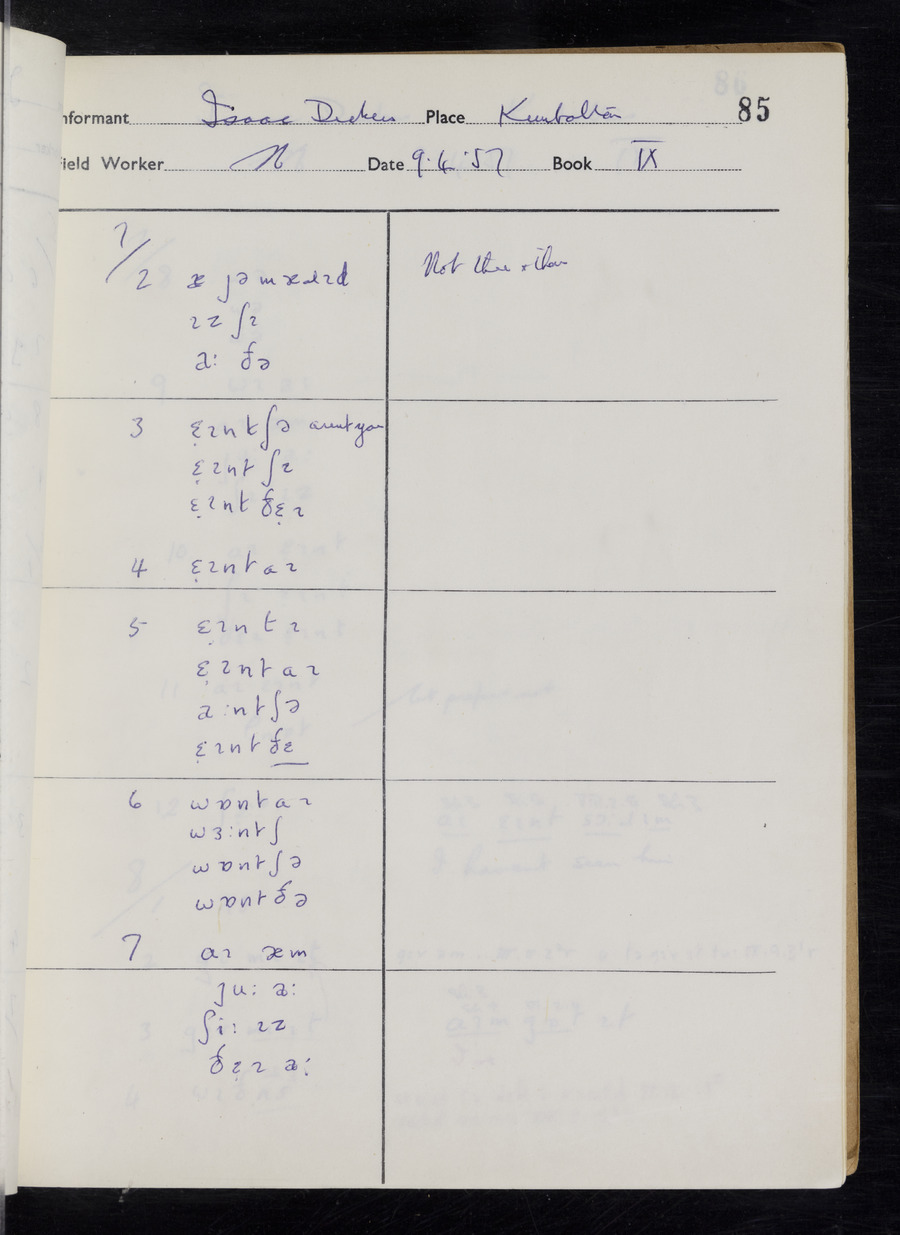 85
Informant Isaac Dicken Place Kimbolton
Field Worker N Date 9.4.57 Book IX
7/
2 æ jə mæɹɪd
ɪz ʃɪ
a: ðə
Not thee & thou
3 ɛ̣ɪntʃə aren't you
ɛ̣ɪnt ʃɪ
ɛ̣ɪnt ðɛ̣ɪ
4 ɛ̣ɪnt aɪ
5 ɛ̣ɪnt ɪ
ɛ̣ɪnt aɪ
a:ntʃə
ɛ̣ɪnt ðɛ
6 wɒnt aɪ
wɜ:nt ʃ
wɒntʃə
wɒnt ðə
7 aɪ æm
ju: a:
ʃi: ɪz
ðɛ̣ɪ a: